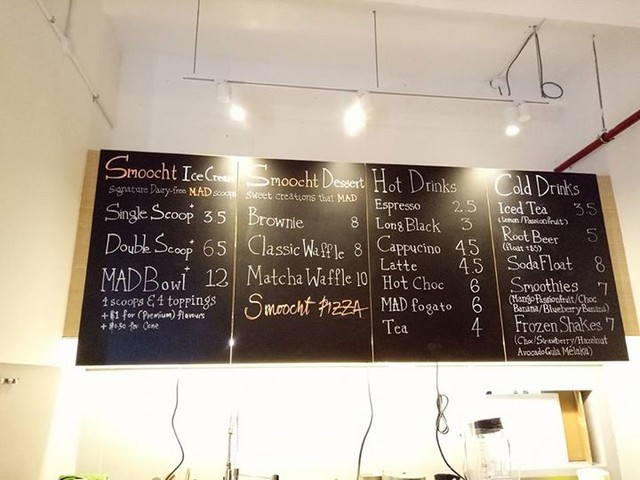 Smoocht Ice Cream
Signature Dairy-free MAD scoops
Single Scoop+ 3.5
Double Scoop+ 6.5
MAD Bowl+ 12
4 scoops & 4 toppings
+ $1 for (Premium) flavours
+ $0.50 for Cone
Smoocht Dessert
Sweet creations that MAD
Brownie 8
Classic Waffle 8
Matcha Waffle 10
Smoocht PIZZA
Hot Drinks
Espresso 2.5
Long Black 3
Cappucino 4.5
Latte 4.5
Hot Choc 6
MADfogato 6
Tea 4
Cold Drinks
Iced Tea 3.5
(Lemon/Passionfruit)
Root Beer 5
(float +$5)
Soda Float 8
Smoothies 7
(Mango Passionfruit/Choc
Banana/Blueberry Banana)
Frozen Shakes 7
(Choc/Strawberry/Hazelnut
Avocado Gula Melaka)